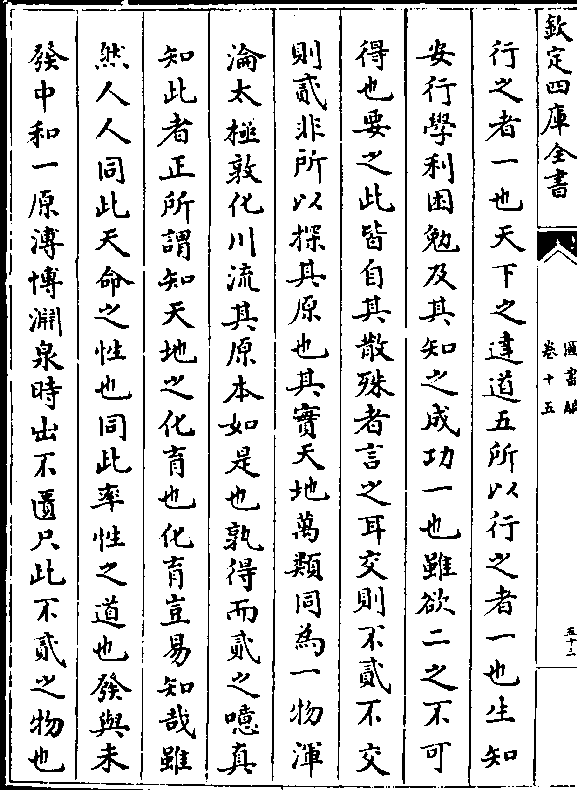 欽定四庫全書
圖書編
卷十五
五十二
行之者一也天下之達道五所以行之者一也生知
安行學利困勉及其知之成功一也雖欲二之不可
得也要之此皆自其散殊者言之耳交則不貳不交
則貳非所以探其原也其實天地萬類同為一物渾
淪太極敦化川流其原本如是也孰得而貳之噫真
知此者正所謂知天地之化育也化育豈易知哉雖
然人人同此天命之性也同此率性之道也發與未
發中和一原溥博淵泉時出不匱只此不貳之物也